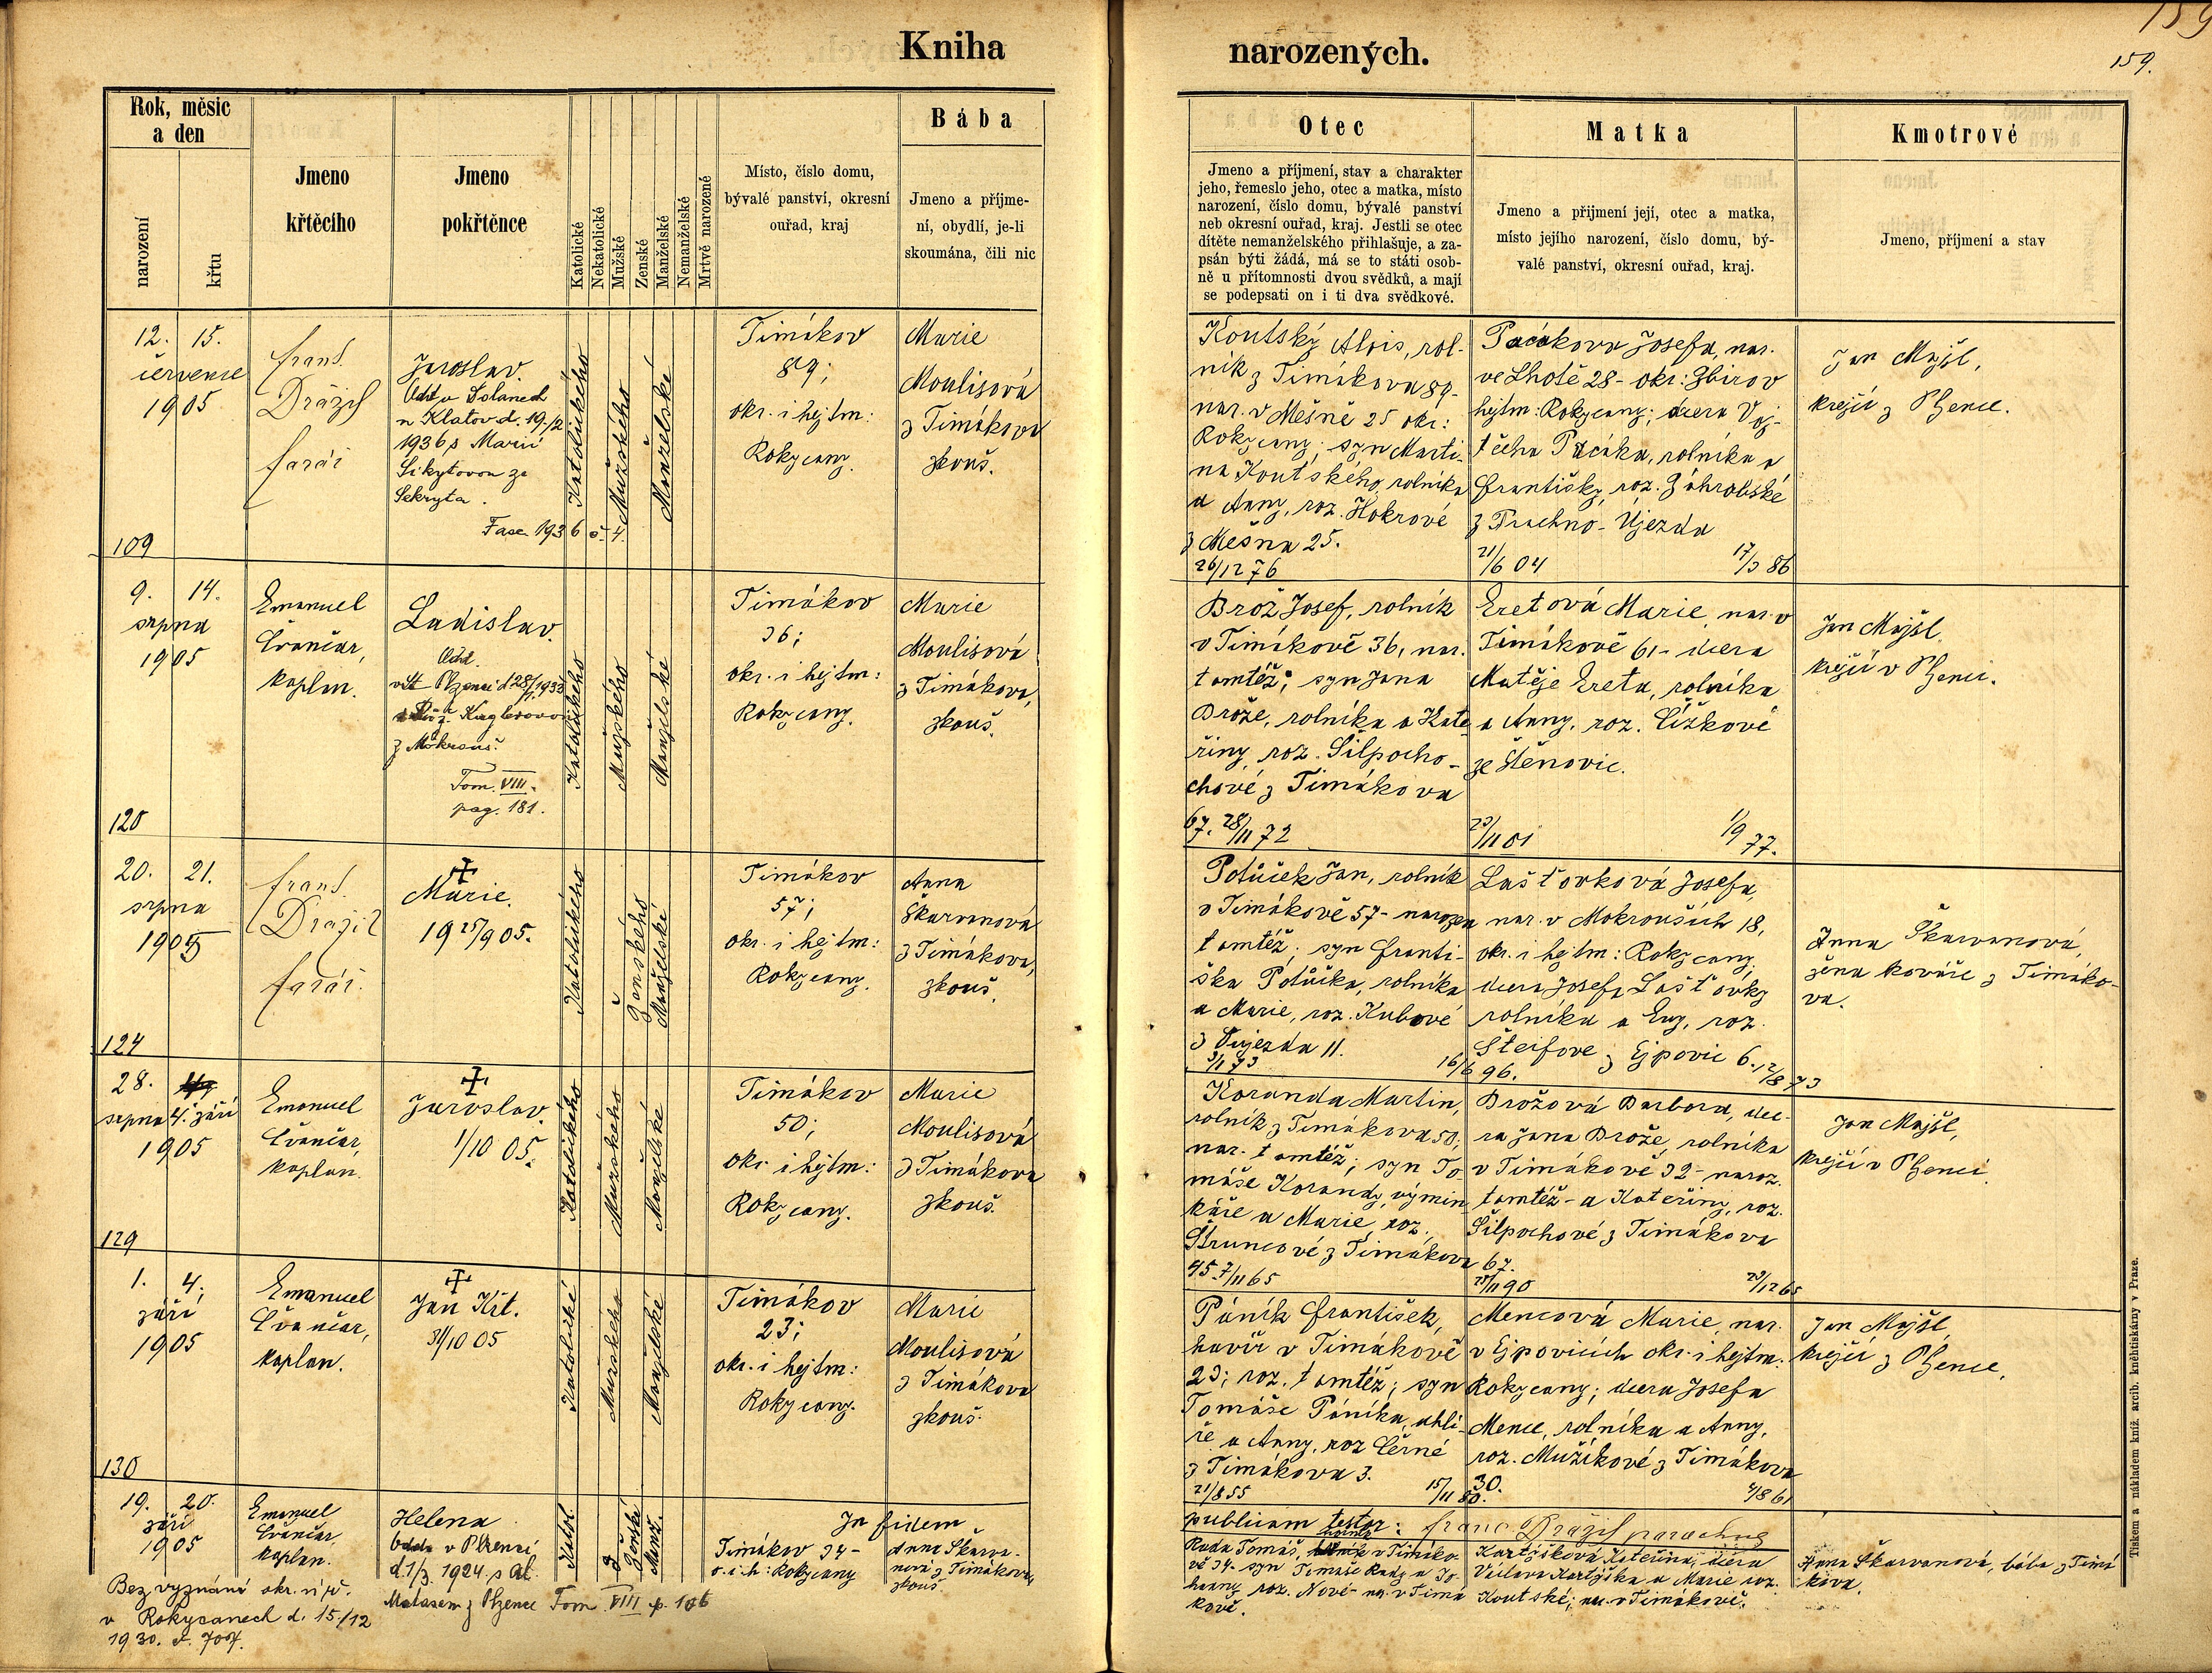 159
159.
Kniha narozených.
Rok, měsíc a den
narození
křtu
Jmeno křtěcího
Jmeno pokřtěnce
Katolické
Nekatolické
Mužské
Ženské
Manželské
Nemanželské
Mrtvě narozené
Místo, číslo domu,
bývalé panství, okresní
ouřad, kraj
Bába
Jmeno a příjme-
ní, obydlí, je-li
skoumána, čili nic
Otec
Jmeno a příjmení, stav a charakter
jeho, řemeslo jeho, otec a matka, místo
narození, číslo domu, bývalé panství
neb okresní ouřad, kraj. Jestli se otec
dítěte nemanželského přihlašuje, a za-
psán býti žádá, má se to státi osob-
ně u přítomnosti dvou svědků, a mají
se podepsati on i ti dva svědkové.
Matka
Jmeno a přijmení její, otec a matka,
místo jejího narození, číslo domu, bý-
valé panství, okresní ouřad, kraj.
Kmotrové
Jmeno, příjmení a stav
12. 15.
července
1905
109
Frant.
Drážil
farář
Jaroslav.
Odd. v Dolanech
n Klatov d. 19./2
1936 s Marií
Sikytovou ze
Sekryta.
Fasc. 1936 č. 4.
Katolického
Mužského
Manželské
Timákov
89;
okr. i hejtm:
Rokycany.
Marie
Moulisová
z Timákova
zkouš.
Koutský Alois, rol-
ník z Timákova 89-
nar. v Mešně 25 okr:
Rokycany; syn Marti-
na Koutského, rolníka
a Anny, roz. Hokrové
z Mešna 25.
26/12 76
Pacákova Josefa, nar.
ve Lhotě 28- okr: Zbirov
hejtm: Rokycany; dcera Voj-
těcha Pacáka, rolníka a
Františky, roz. Záhrobské
z Trachno-Újezda
21/6 04 17/3 86
Jan Majšl,
krejčí z Plzence.
9. 14.
srpna
1905
120
Emanuel
Čvančar,
kaplan.
Ladislav.
Odd.
v Plzenci d 28/1 1933
Kuglerovou
z Mokrouš.
Tom. VIII.
pag. 181.
Katolického
Mužského
Manželské
Timákov
36;
okr. i hejtm:
Rokycany.
Marie
Moulisová
z Timákova,
zkouš.
Brož Josef, rolník
v Timákově 36, nar.
tamtéž; syn Jana
Brože, rolníka a Kate-
řiny, roz. Šilpocho-
chové z Timákova
67. 28/11 72
Eretová Marie, nar. v
Timákově 61- dcera
Matěje Ereta, rolníka
a Anny, roz. Čížkové
ze Štěnovic.
23/11 01 1/9 77.
Jan Majšl,
krejčí v Plzenci.
20. 21.
srpna
1905
124
Frant.
Drážil
farář.
†
Marie.
19 25/9 05.
Katolického
Ženského
Manželské
Timákov
57;
okr. i hejtm:
Rokycany.
Anna
Škarvanová
z Timákova,
zkouš.
Potůček Jan, rolník
v Timákově 57- narozen
tamtéž; syn Franti-
ška Potůčka, rolníka
a Marie, roz. Kubové
z Újezda 11.
3/1 73 16/6 96.
Lašťovková Josefa,
nar. v Mokrouších 18,
okr. i hejtm: Rokycany,
dcera Josefa Lašťovky
rolníka a Evy, roz.
Steifove z Ejpovic 6. 12/8 73
Anna Škarvanová,
žena kováře z Timáko-
va.
28. 4. září
srpna
1905
129
Emanuel
Čvančar,
kaplan.
†
Jaroslav.
1/10 05.
Katolického
Mužského
Manželské
Timákov
50;
okr. i hejtm:
Rokycany.
Marie
Moulisová
z Timákova
zkouš.
Koranda Martin,
rolník z Timákova 50.
nar. tamtéž; syn To-
máše Korandy, výmin-
káře a Marie, roz.
Štruncové z Timákova
45 7/11 65
Brožová Barbora, dce-
ra Jana Brože, rolníka
v Timákově 32- naroz.
tamtéž- a Kateřiny, roz.
Šilpochové z Timákova
67.
25/11 90 29/12 65
Jan Majšl,
krejčí v Plzenci.
1. 4.
září
1905
130
Emanuel
Čvančar,
kaplan.
†
Jan Křt.
31/10 05
Katolické
Mužského
Manželské
Timákov
23;
okr. i hejtm:
Rokycany.
Marie
Moulisová
z Timákova
zkouš.
Páník František,
havíř v Timákově
23; roz. tamtéž; syn
Tomáše Páníka, uhlí-
ře a Anny, roz Černé
z Timákova 3.
21/8 55 15/11 80.
Mencová Marie, nar.
v Ejpovicích okr. i hejtm.
Rokycany; dcera Josefa
Mence, rolníka a Anny,
roz. Mužíkové z Timákova
30.
4/8 61
Jan Majšl
krejčí z Plzence.
19. 20.
září
1905
Emanuel
Čvančar
kaplan.
Helena
Odda v Plzenci
d. 1/3 1924 s Al.
Matasem z Plzence Tom. VIII p. 106
Katol.
Ženské
Manž.
Timákov 34-
o. i. h: Rokycany
In fidem
Anna Škarva-
nová z Timákova,
zkouš.
publicam testor: Franc Drážil parochus
Rada Tomáš, v Timáko-
vě 34- syn Tomáše Rady a Jo-
hanny roz. Nové- nar. v Timá
kově.
Kartýsková Kateřina, dcera
Václava Kartýska a Marie roz.
Koutské; nar. v Timákově.
Anna Škarvanová, bába z Timá
kova.
Bez vyznání okr. úř.
v Rokycanech d. 15/12
1930. č.
Tiskem a nákladem kníž. arcib. kněhtiskárny v Praze.